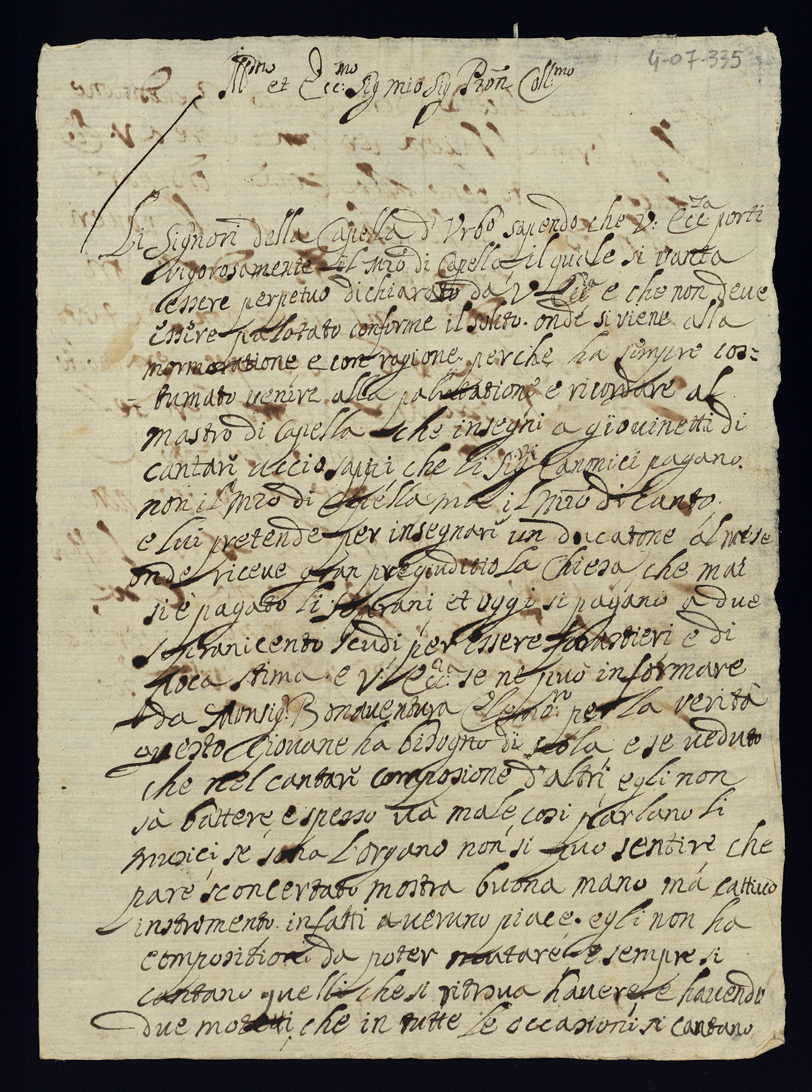 4-07-335
Ill.mo et Ecc.mo Sig mio Sig Pron Coll.mo
Li Signori della Capella d'Urbo sapendo che V. Ecc.za porti
vigorosamente il Mro di Capella il quale si vanta
essere perpetuo dichiarato da V. Ecc.za e che non deve
essere palotato conforme il solito. onde si viene alla
mormoratione e con ragione. perche ha sempre cos=
tumato venire alla palotatione e ricordare al
mastro di Capella che insegni a giovinetti di
cantare acciò sappi che li Sig.ri Canonici pagano.
non il Mro di Capella ma il Mro di Canto,
e lui pretende per insegnare un ducatone al mese
onde riceve gran pregiuditio la Chiesa, che mai
si è pagato li soprani et oggi si pagano a due
soprani cento scudi per essere forastieri e di
poca stima. e V. Ecc.za se ne può informare
da Monsig.r Bonaventura per la verità
questo Giovane ha bisogno di scola e se veduto
che nel cantare composizione d'altri egli non
sà battere, e spesso và male, cosi parlano li
musici se sona l'organo non si può sentire che
pare sconcertato mostra buona mano ma cattivo
instromento. infatti a veruno piace. egli non ha
compositioni da poter mutare e sempre si
cantano quelli che si ritrova havere, e havendo
due motetti, che in tutte le occasioni si cantano